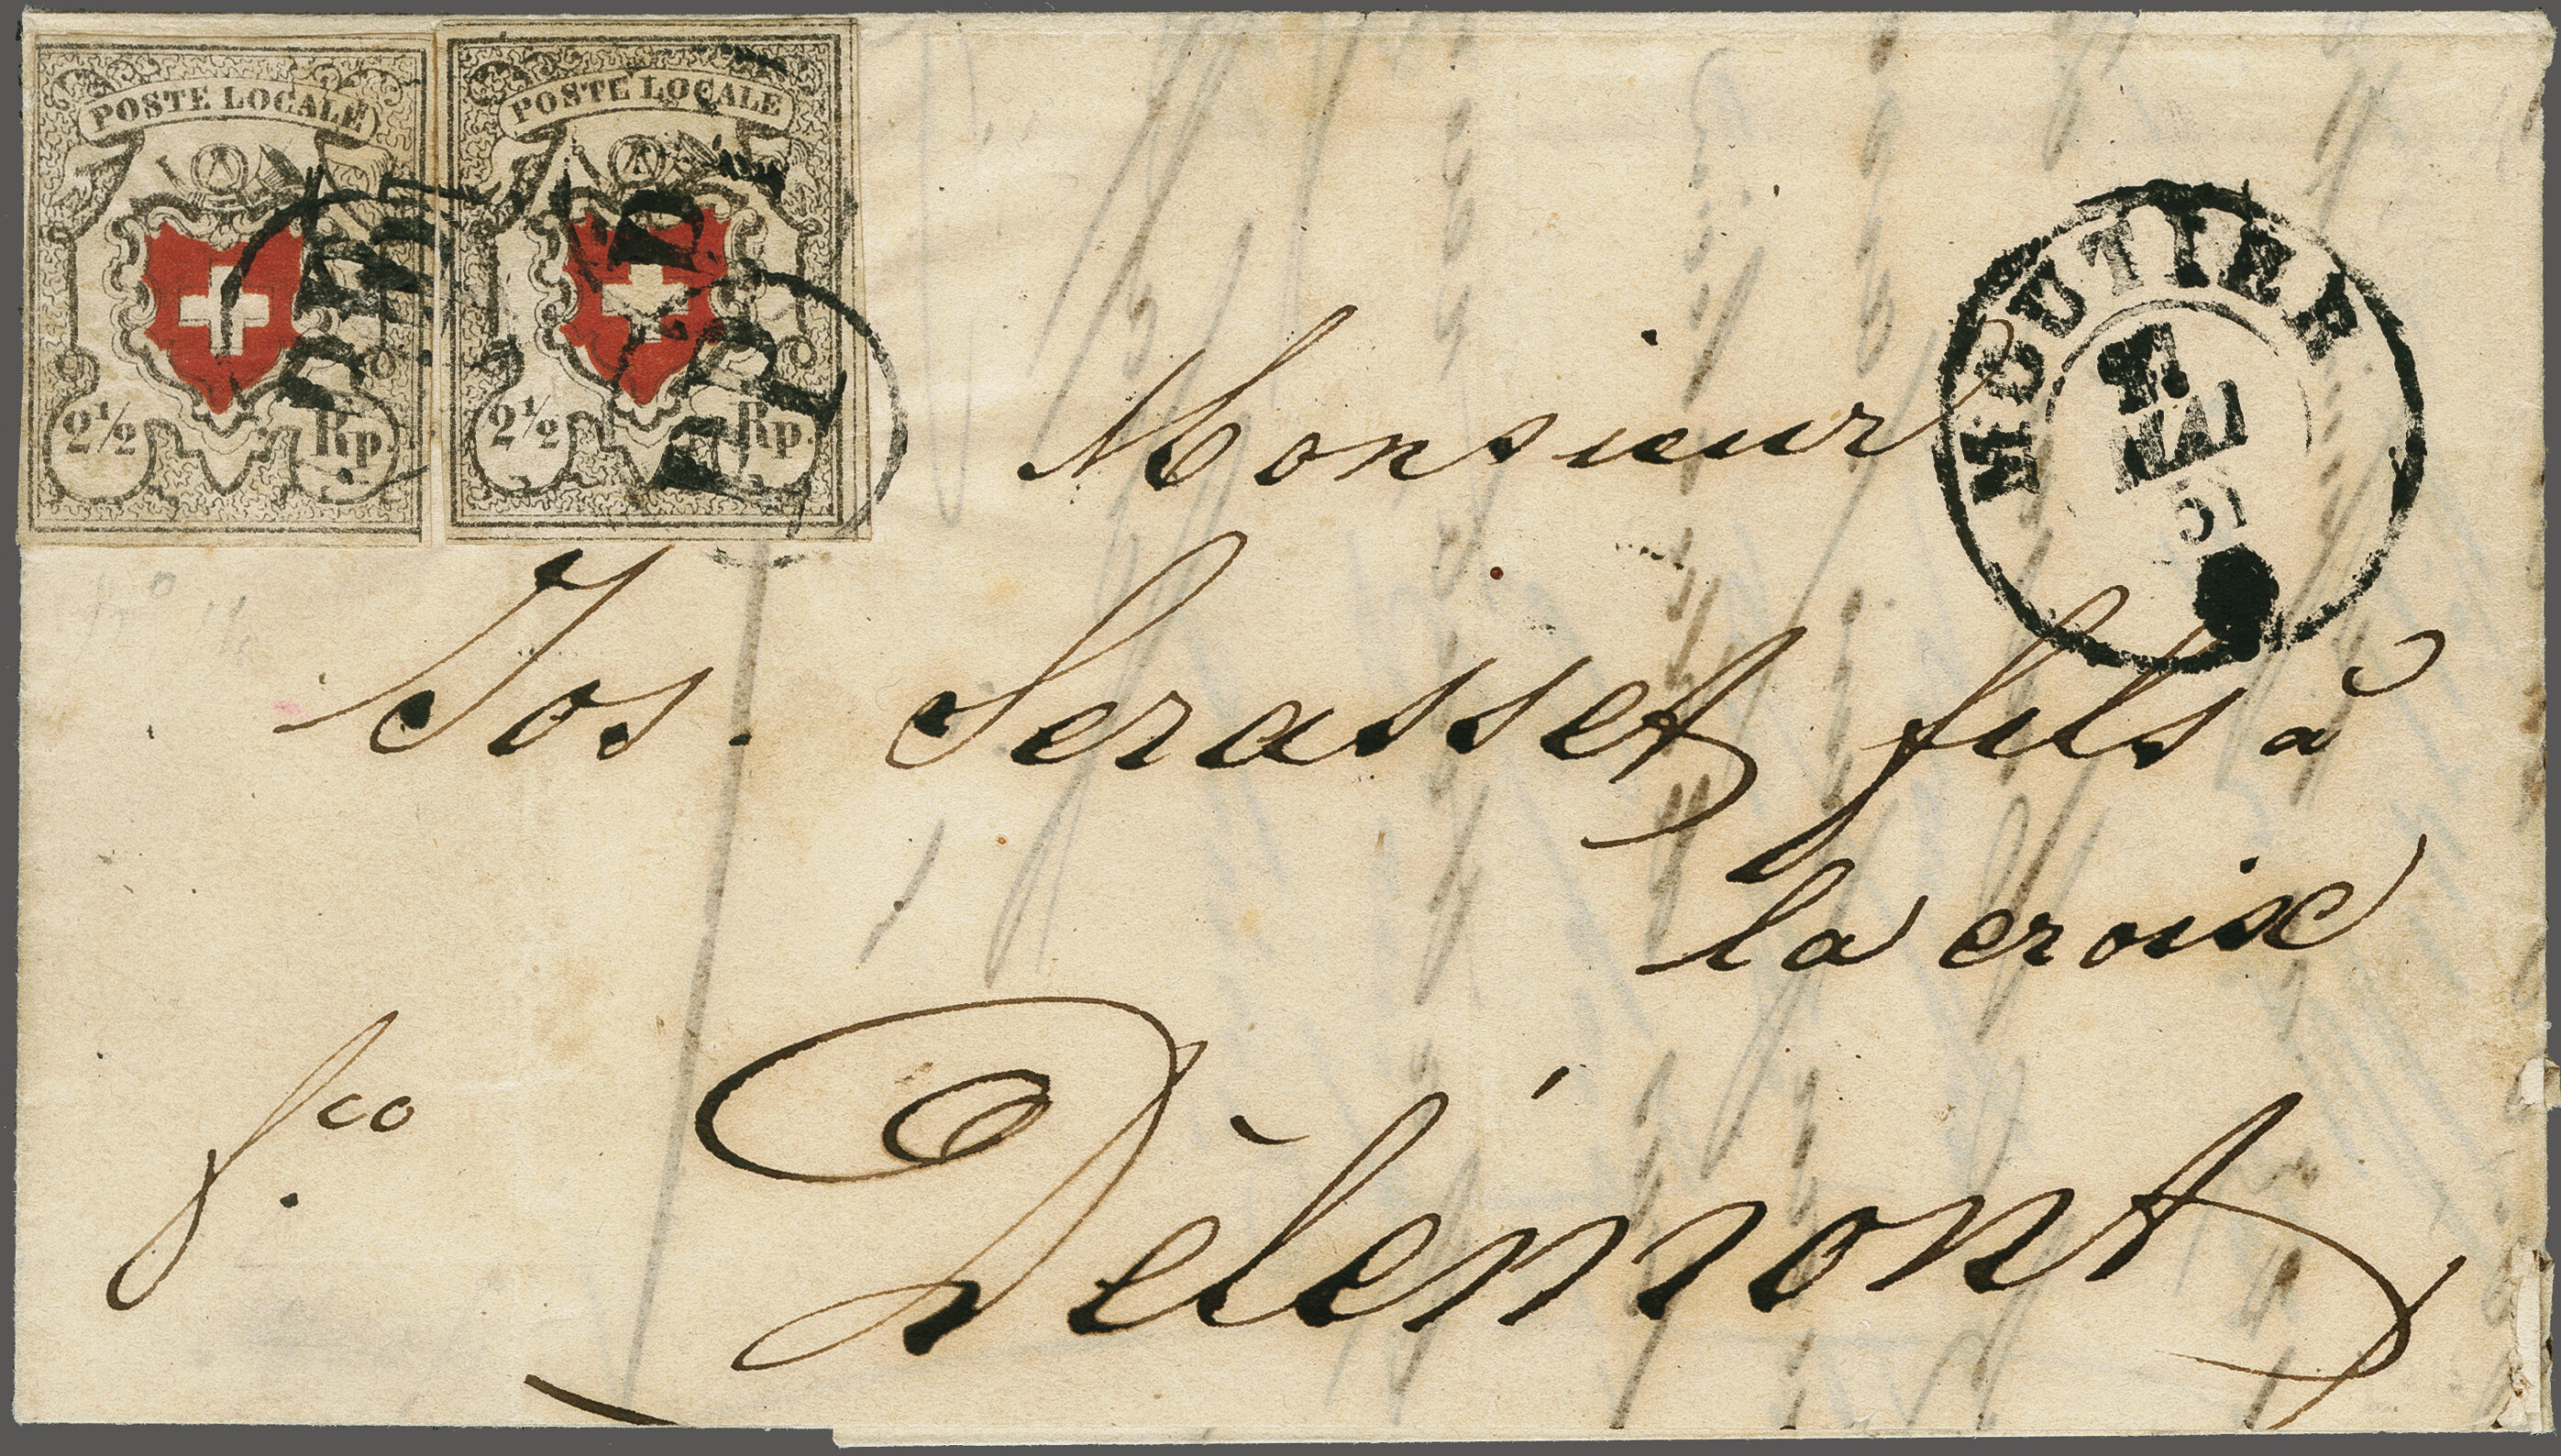 POSTE LOCALE
2½ Rp.
POSTE LOCALE
2½ Rp.
MOUTIER
MAI
51
Monsieur
Jos. Serasset fils à
la croix
fco
Délémont